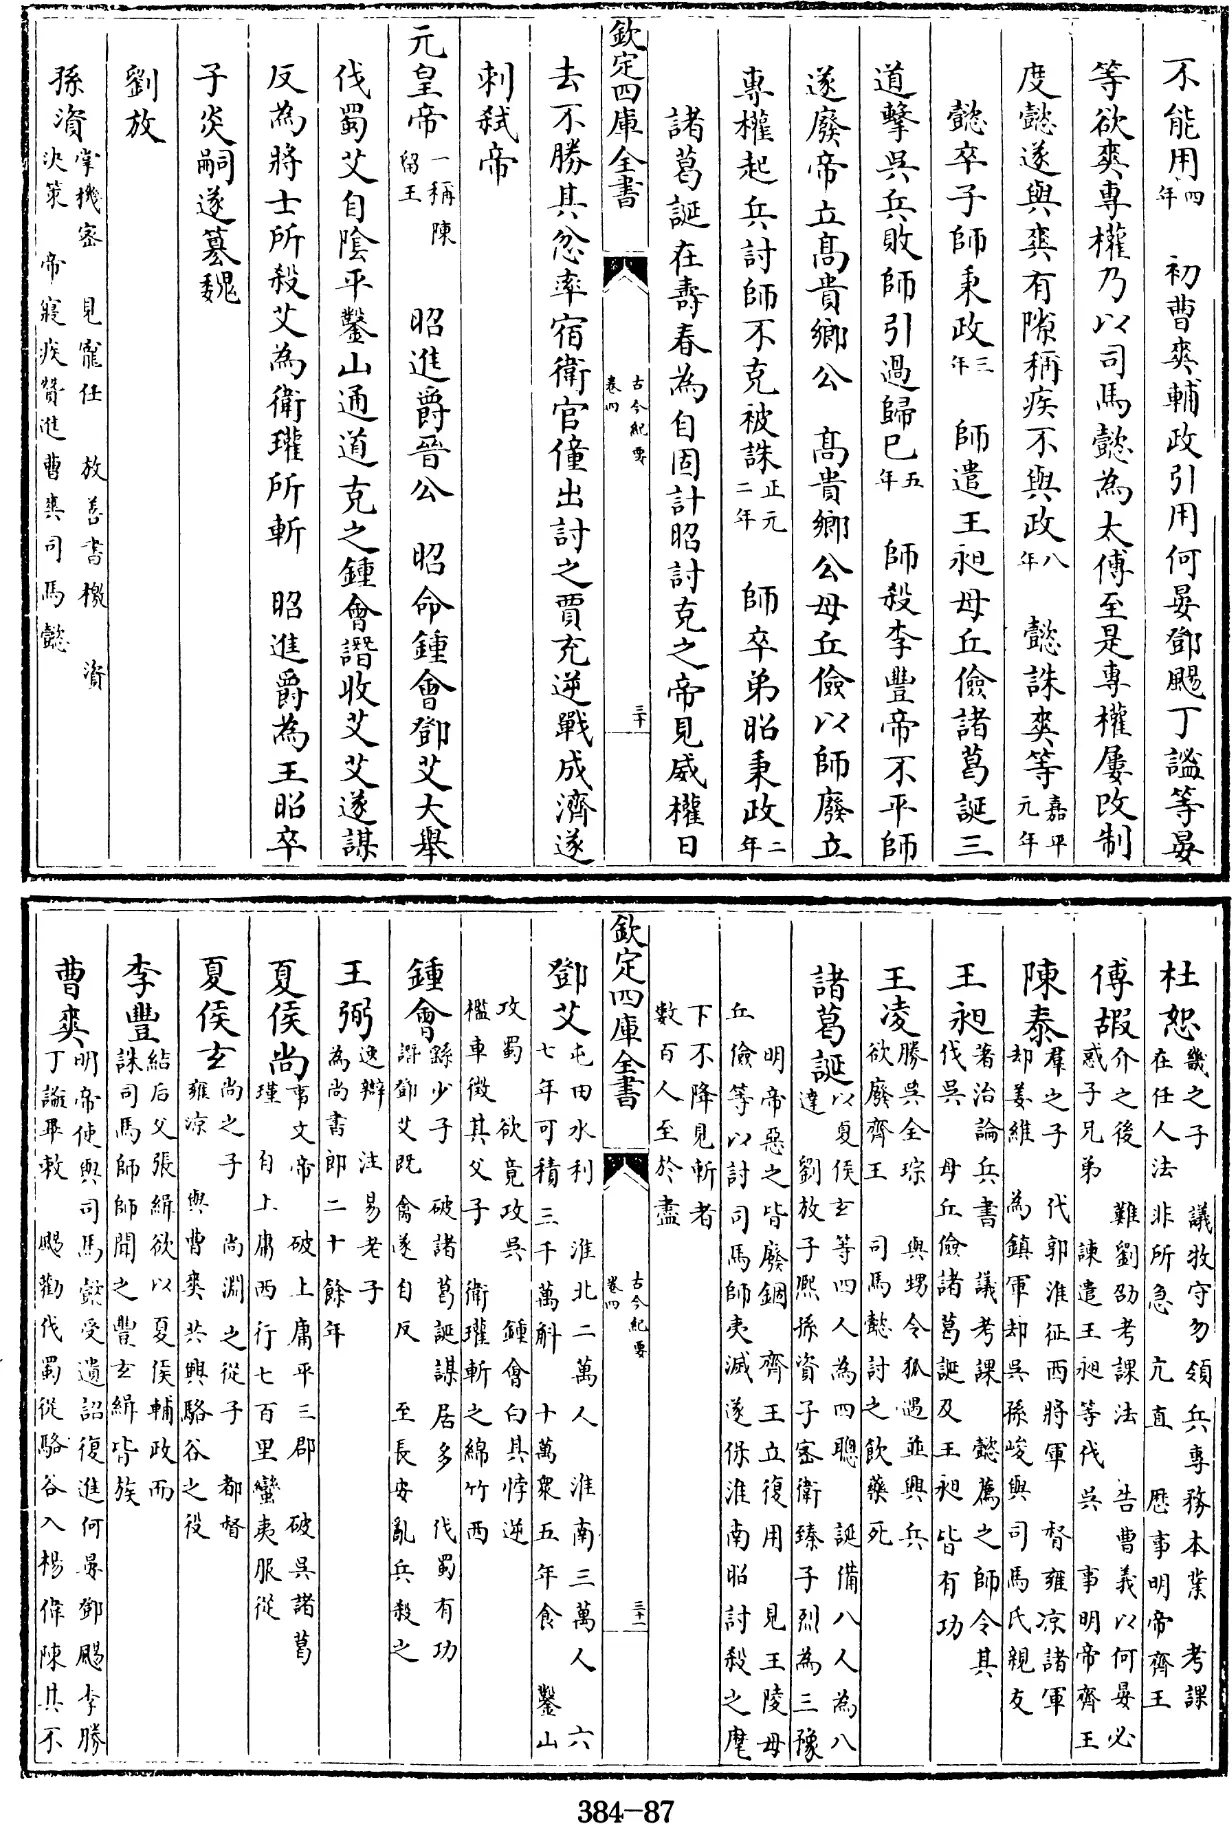 不能用四年　初曹爽輔政引用何晏鄧颺丁謐等晏
等欲爽專權乃以司馬懿為太傅至是專權屢改制
度懿遂與爽有隙稱疾不與政八年　懿誅爽等嘉平元年
懿卒子師秉政三年　師遣王昶毋丘儉諸葛誕三
道擊吳兵敗師引過歸已五年　師殺李豐帝不平師
遂廢帝立髙貴鄉公　髙貴鄉公毋丘儉以師廢立
專權起兵討師不克被誅正元二年　師卒弟昭秉政二年
諸葛誕在壽春為自固計昭討克之帝見威權日
欽定四庫全書　古今紀要卷四　三十
去不勝其忿率宿衛官僮出討之賈充逆戰成濟遂
刺弑帝
元皇帝一稱陳留王　昭進爵晉公　昭命鍾會鄧艾大舉
伐蜀艾自陰平鑿山通道克之鍾會譖收艾艾遂謀
反為將士所殺艾為衛瓘所斬　昭進爵為王昭卒
子炎嗣遂篡魏
劉放
孫資掌機密　見寵任　放善書檄　資決策　帝寢疾贊進曹爽司馬懿
杜恕畿之子　議牧守勿領兵專務本業　考課在任人法非所急　亢直　歷事明帝齊王
傅嘏介之後　難劉劭考課法　告曹義以何晏必惑子兄弟　諫遣王昶等伐吳　事明帝齊王
陳泰羣之子　代郭淮征西將軍　督雍凉諸軍却姜維　為鎮軍却吳孫峻與司馬氏親友
王昶著治論兵書　議考課　懿薦之師令其伐吳　毋丘儉諸葛誕及王昶皆有功
王凌勝吳全琮　與甥令狐愚並興兵欲廢齊王　司馬懿討之飲藥死
諸葛誕以夏侯玄等四人為四聰　誕備八人為八達　劉放子熙孫資子密衛臻子烈為三豫
明帝惡之皆廢錮　齊王立復用　見王陵毋丘儉等以討司馬師夷滅遂保淮南昭討殺之麾
下不降見斬者數百人至於盡
欽定四庫全書　古今紀要卷四　三十一
鄧艾屯田水利　淮北二萬人　淮南三萬人　六七年可積三千萬斛　十萬衆五年食　鑿山
攻蜀　欲竟攻吳　鍾會白其悖逆檻車徵其父子　衛瓘斬之綿竹西
鍾會繇少子　破諸葛誕謀居多　伐蜀有功譖鄧艾既禽遂自反　至長安亂兵殺之
王弼逸辯　注易老子為尚書郎二十餘年
夏侯尚事文帝　破上庸平三郡　破吳諸葛瑾　自上庸西行七百里蠻夷服從
夏侯玄尚之子　尚淵之從子　都督雍凉　與曹爽共興駱谷之役
李豐結后父張緝欲以夏侯輔政而誅司馬師師聞之豐玄緝皆族
曹爽明帝使與司馬懿受遺詔復進何晏鄧颺李勝丁謐畢軌　颺勸伐蜀從駱谷入楊偉陳其不
384-87